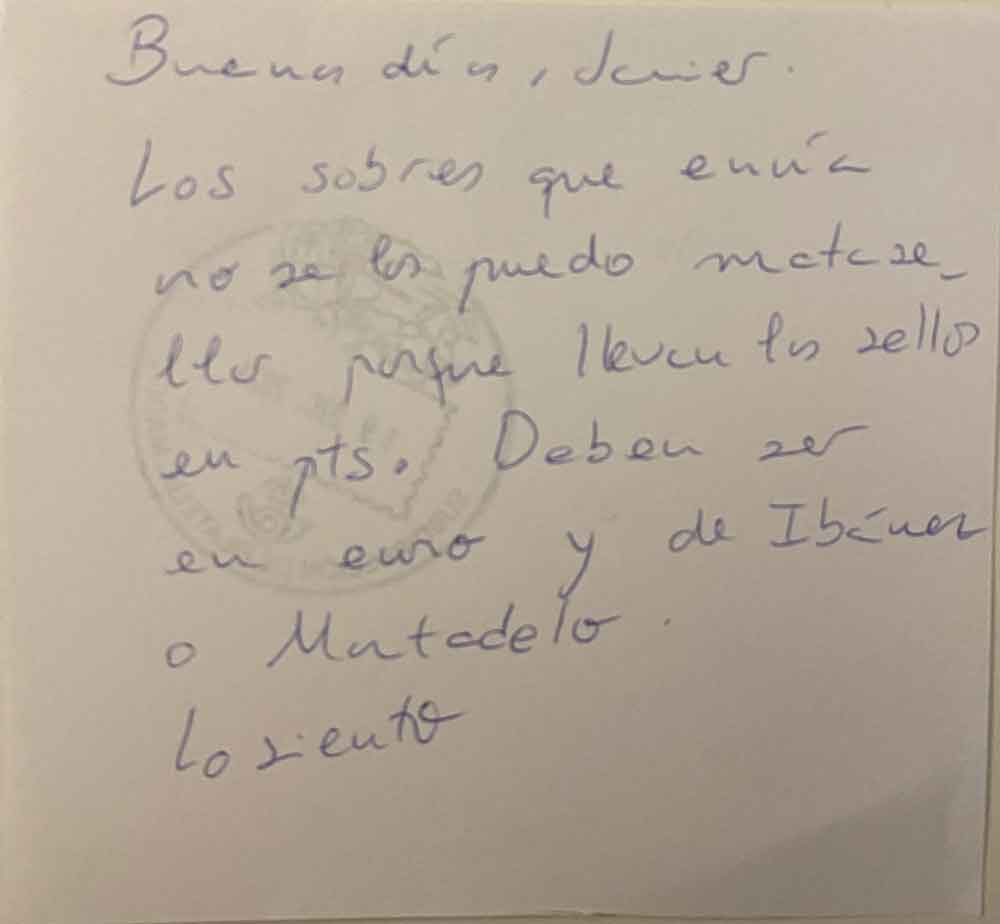 Buenos días, Javier.
Los sobres que envía
no se los puedo matase_
llar porque llevan los sellos
en pts. Deben ser
en euro y de Ibáñez
o Mortadelo.
Lo siento